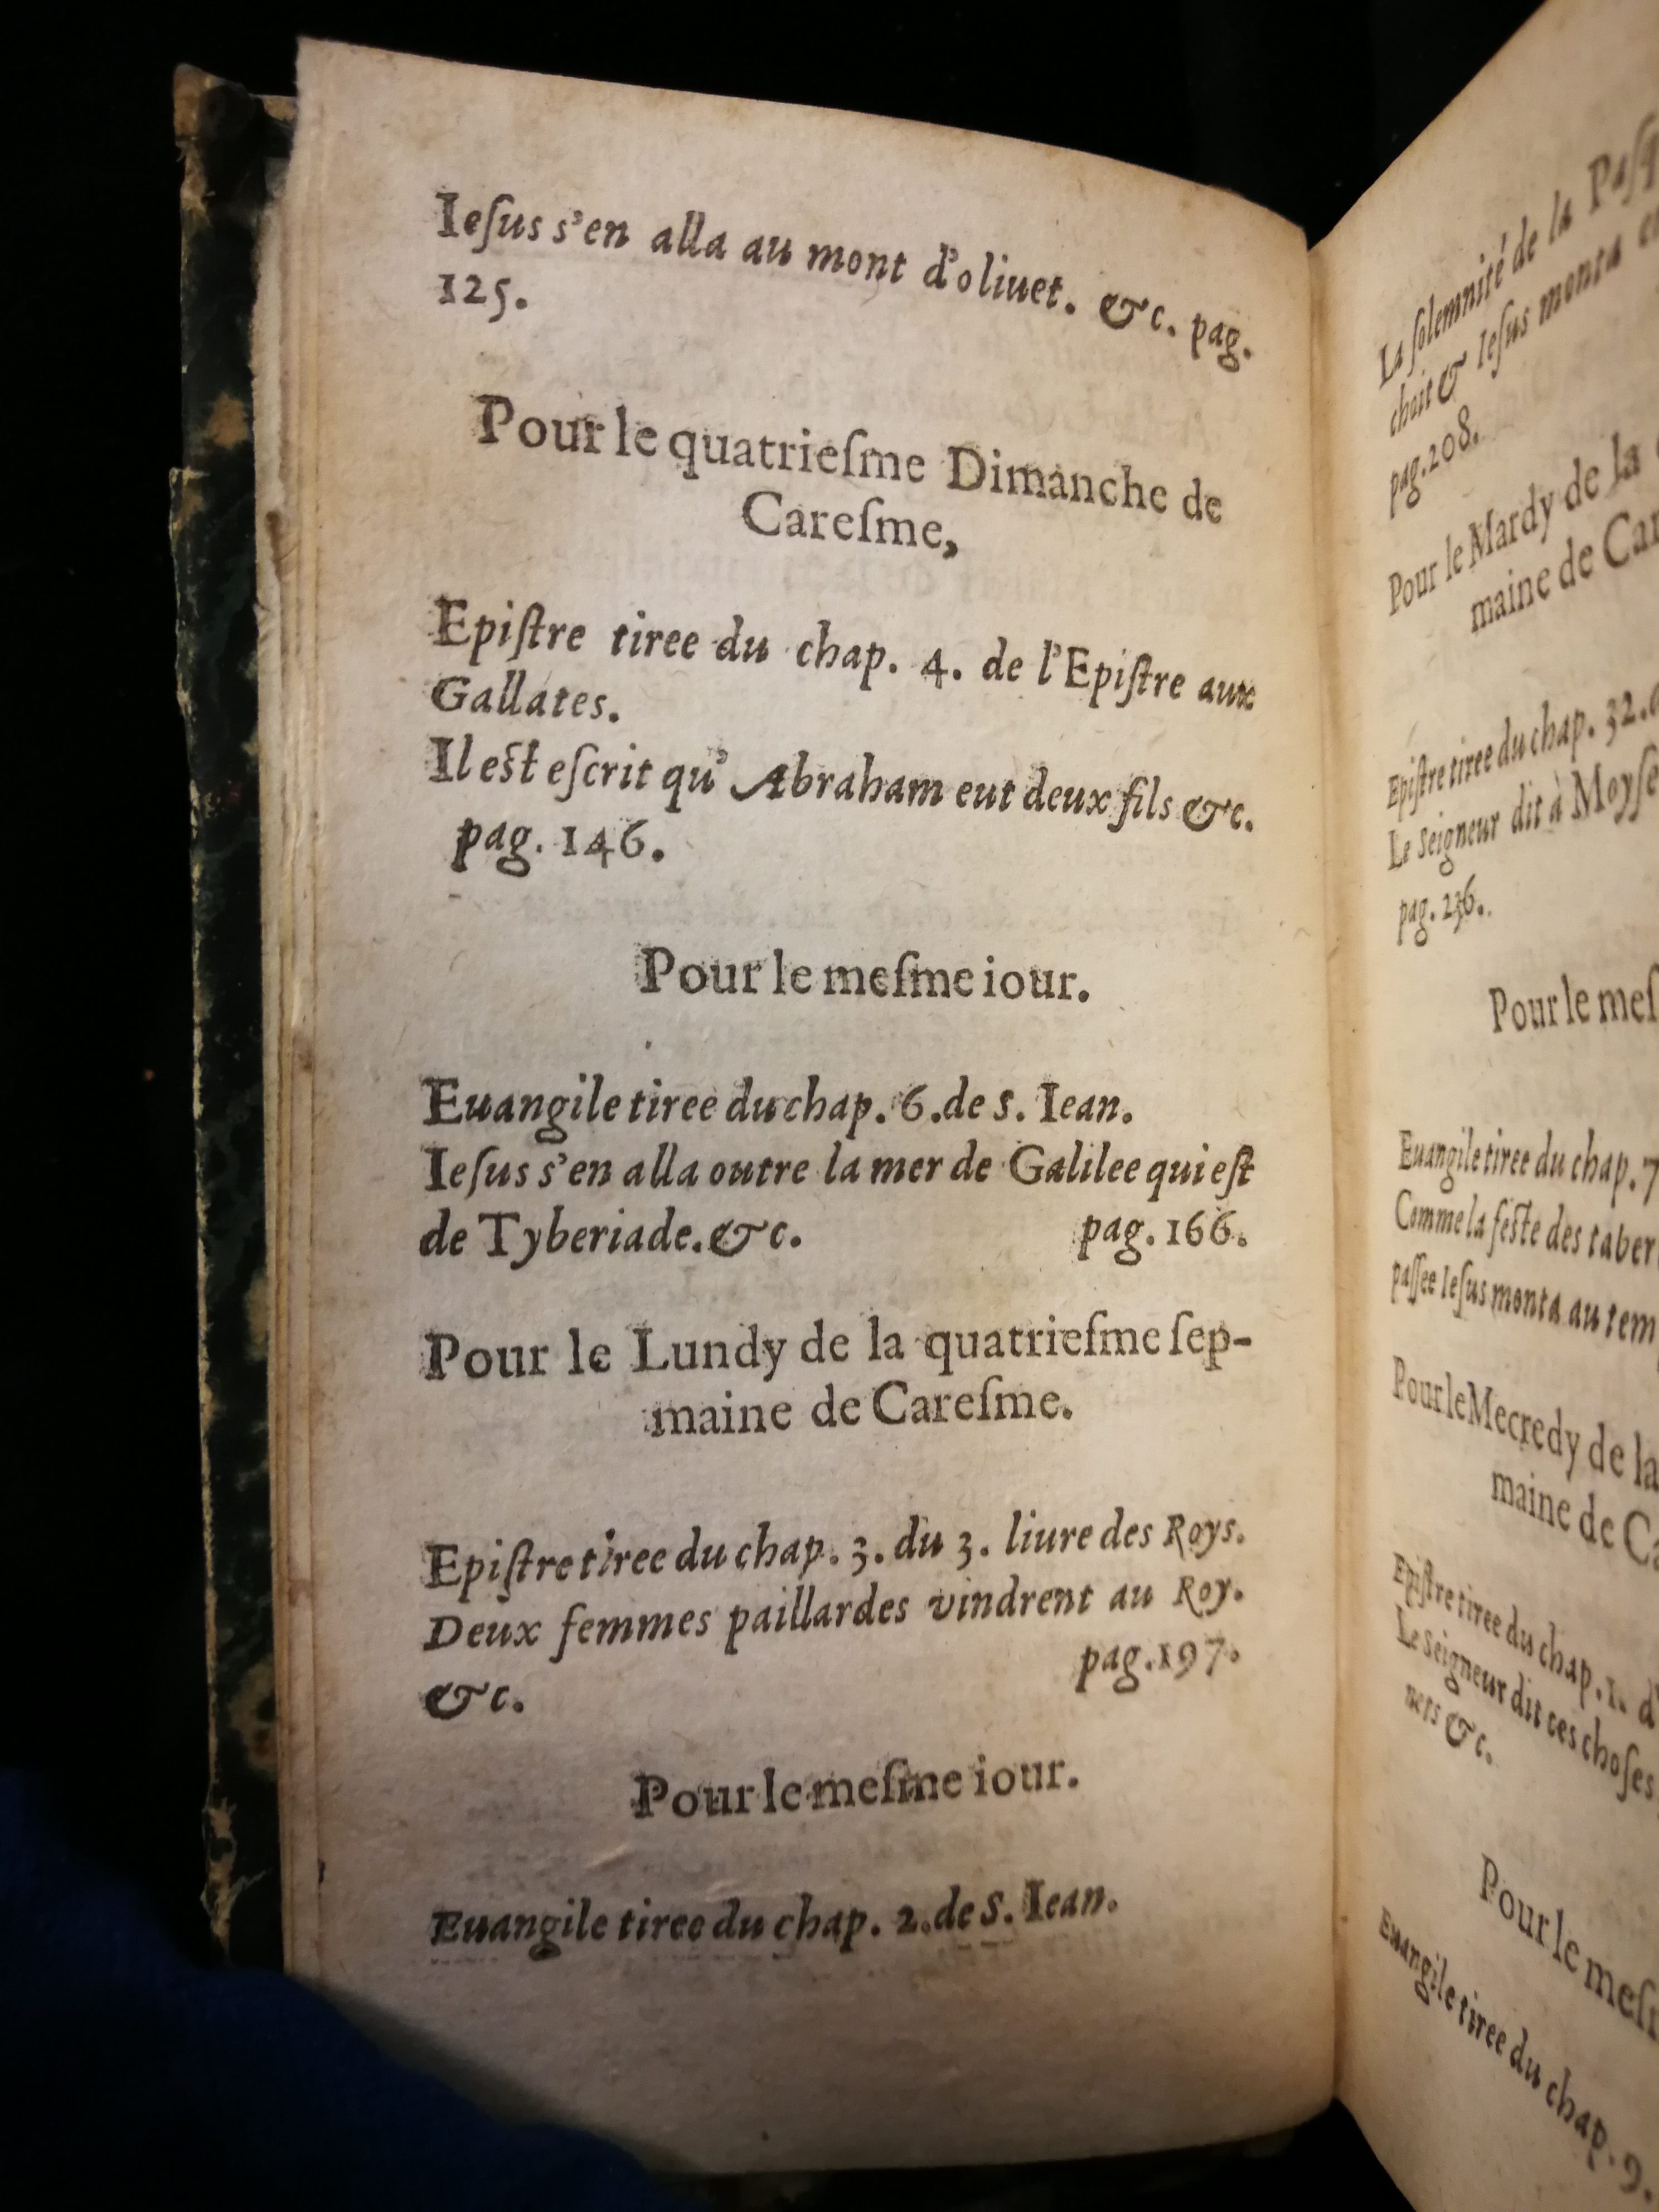 Ieſus s'en alla au mont d'oliuet. &c. pag.
125.
Pour le quatrieſme Dimanche de
Careſme,
Epiſtre tiree du chap. 4. de l'Epiſtre aux
Gallates.
Il est eſcrit qu'Abraham eut deux fils &c.
pag. 146.
Pour le meſme iour.
Euangile tiree du chap. 6. de S. Iean.
Ieſus s'en alla outre la mer de Galilee qui eſt
de Tyberiade. &c. pag. 166.
Pour le Lundy de la quatrieſme ſep-
maine de Careſme.
Epiſtre tiree du chap. 3. du 3. liure des Roys.
Deux femmes paillardes vindrent au Roy.
&c. pag. 197.
Pour le meſme iour.
Euangile tiree du chap. 2. de S. Iean.
La ſolemnité de la
chait & Ieſus monta
pag. 208.
Pour le Mardy de la
maine de
Epiſtre tiree du chap. 32.
Le Seigneur dit à Moyſe
pag. 236.
Pour le
Euangile tiree du chap. 7
Comme la feſte des
paſſee Ieſus monta au
Pour le Mecredy de la
maine de
Epiſtre tiree du chap. 1.
Le Seigneur dit ces choſes
nets &c.
Pour le
Euangile tiree du chap. 9.